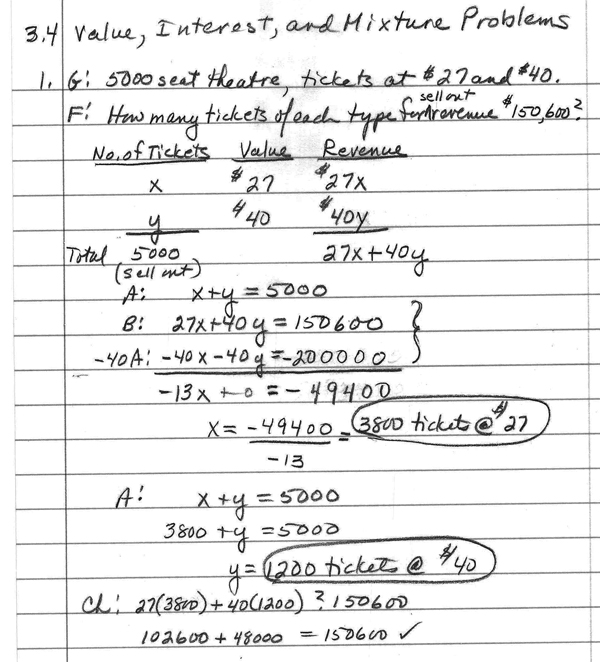 3.4 Value, Interest, and Mixture Problems
1. G: 5000 seat theatre, tickets at $27 and $40.
F: How many tickets of each type for sell out revenue $150,600?
No. of Tickets Value Revenue
x $27 $27x
y $40 $40y
Total 5000 27x+40y
(sell out)
A: x+y = 5000
B: 27x+40y = 150600
-40A: -40x-40y = -200000
-13x + 0 = -49400
x = -49400 = 3800 tickets @ $27
-13
A: x+y = 5000
3800 + y = 5000
y = 1200 tickets @ $40
Ch: 27(3800)+40(1200) ? 150600
102600 + 48000 = 150600 ✓